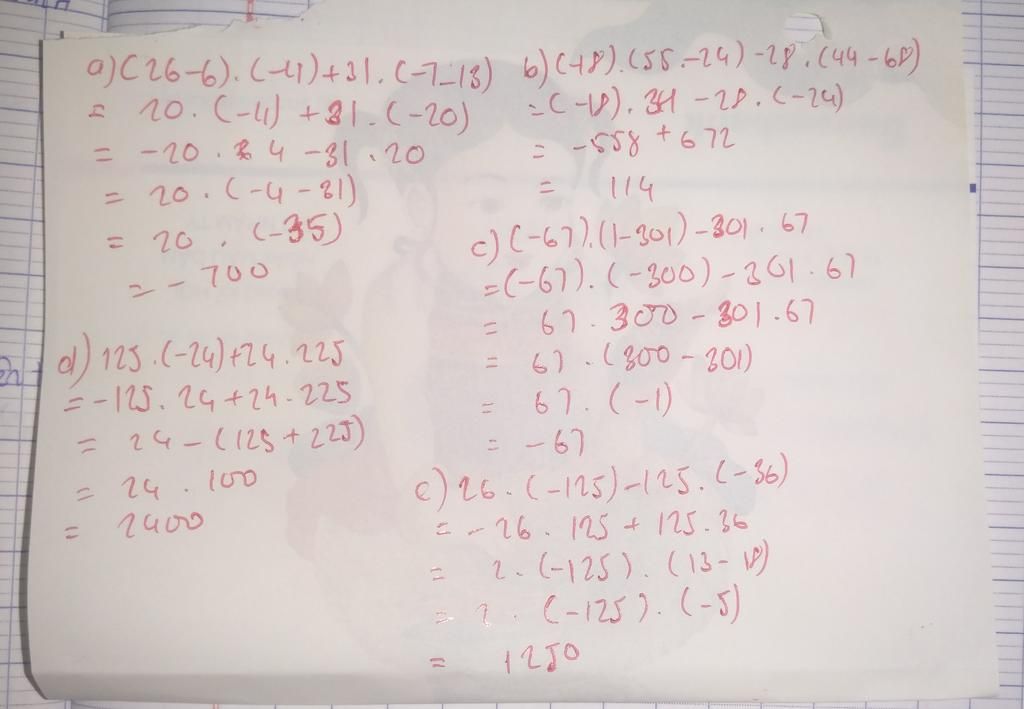 a) (26-6).(-4)+31.(-7-13)
= 20.(-4)+31.(-20)
= -20.4-31.20
= 20.(-4-31)
= 20.(-35)
= -700
b) (-18).(55-24)-28.(44-68)
=(-18).31-28.(-24)
= -558+672
= 114
c) (-67).(1-301)-301.67
=(-67).(-300)-301.67
= 67.300-301.67
= 67.(300-301)
= 67.(-1)
= -67
d) 125.(-24)+24.225
=-125.24+24.225
= 24-(125+225)
= 24.100
= 2400
e) 26.(-125)-125.(-36)
= -26.125+125.36
= 2.(-125).(13-18)
= 2.(-125).(-5)
= 1250